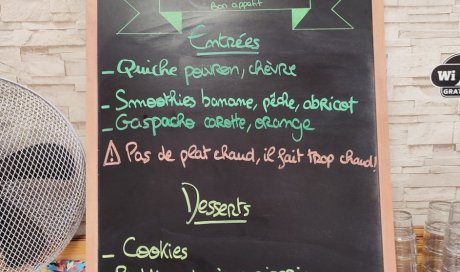 Bon appétit
Entrées
- Quiche poivron, chèvre
- Smoothies banane, pêche, abricot
- Gaspacho carotte, orange
⚠ Pas de plat chaud, il fait trop chaud!
Desserts
- Cookies
Wi
GRAT